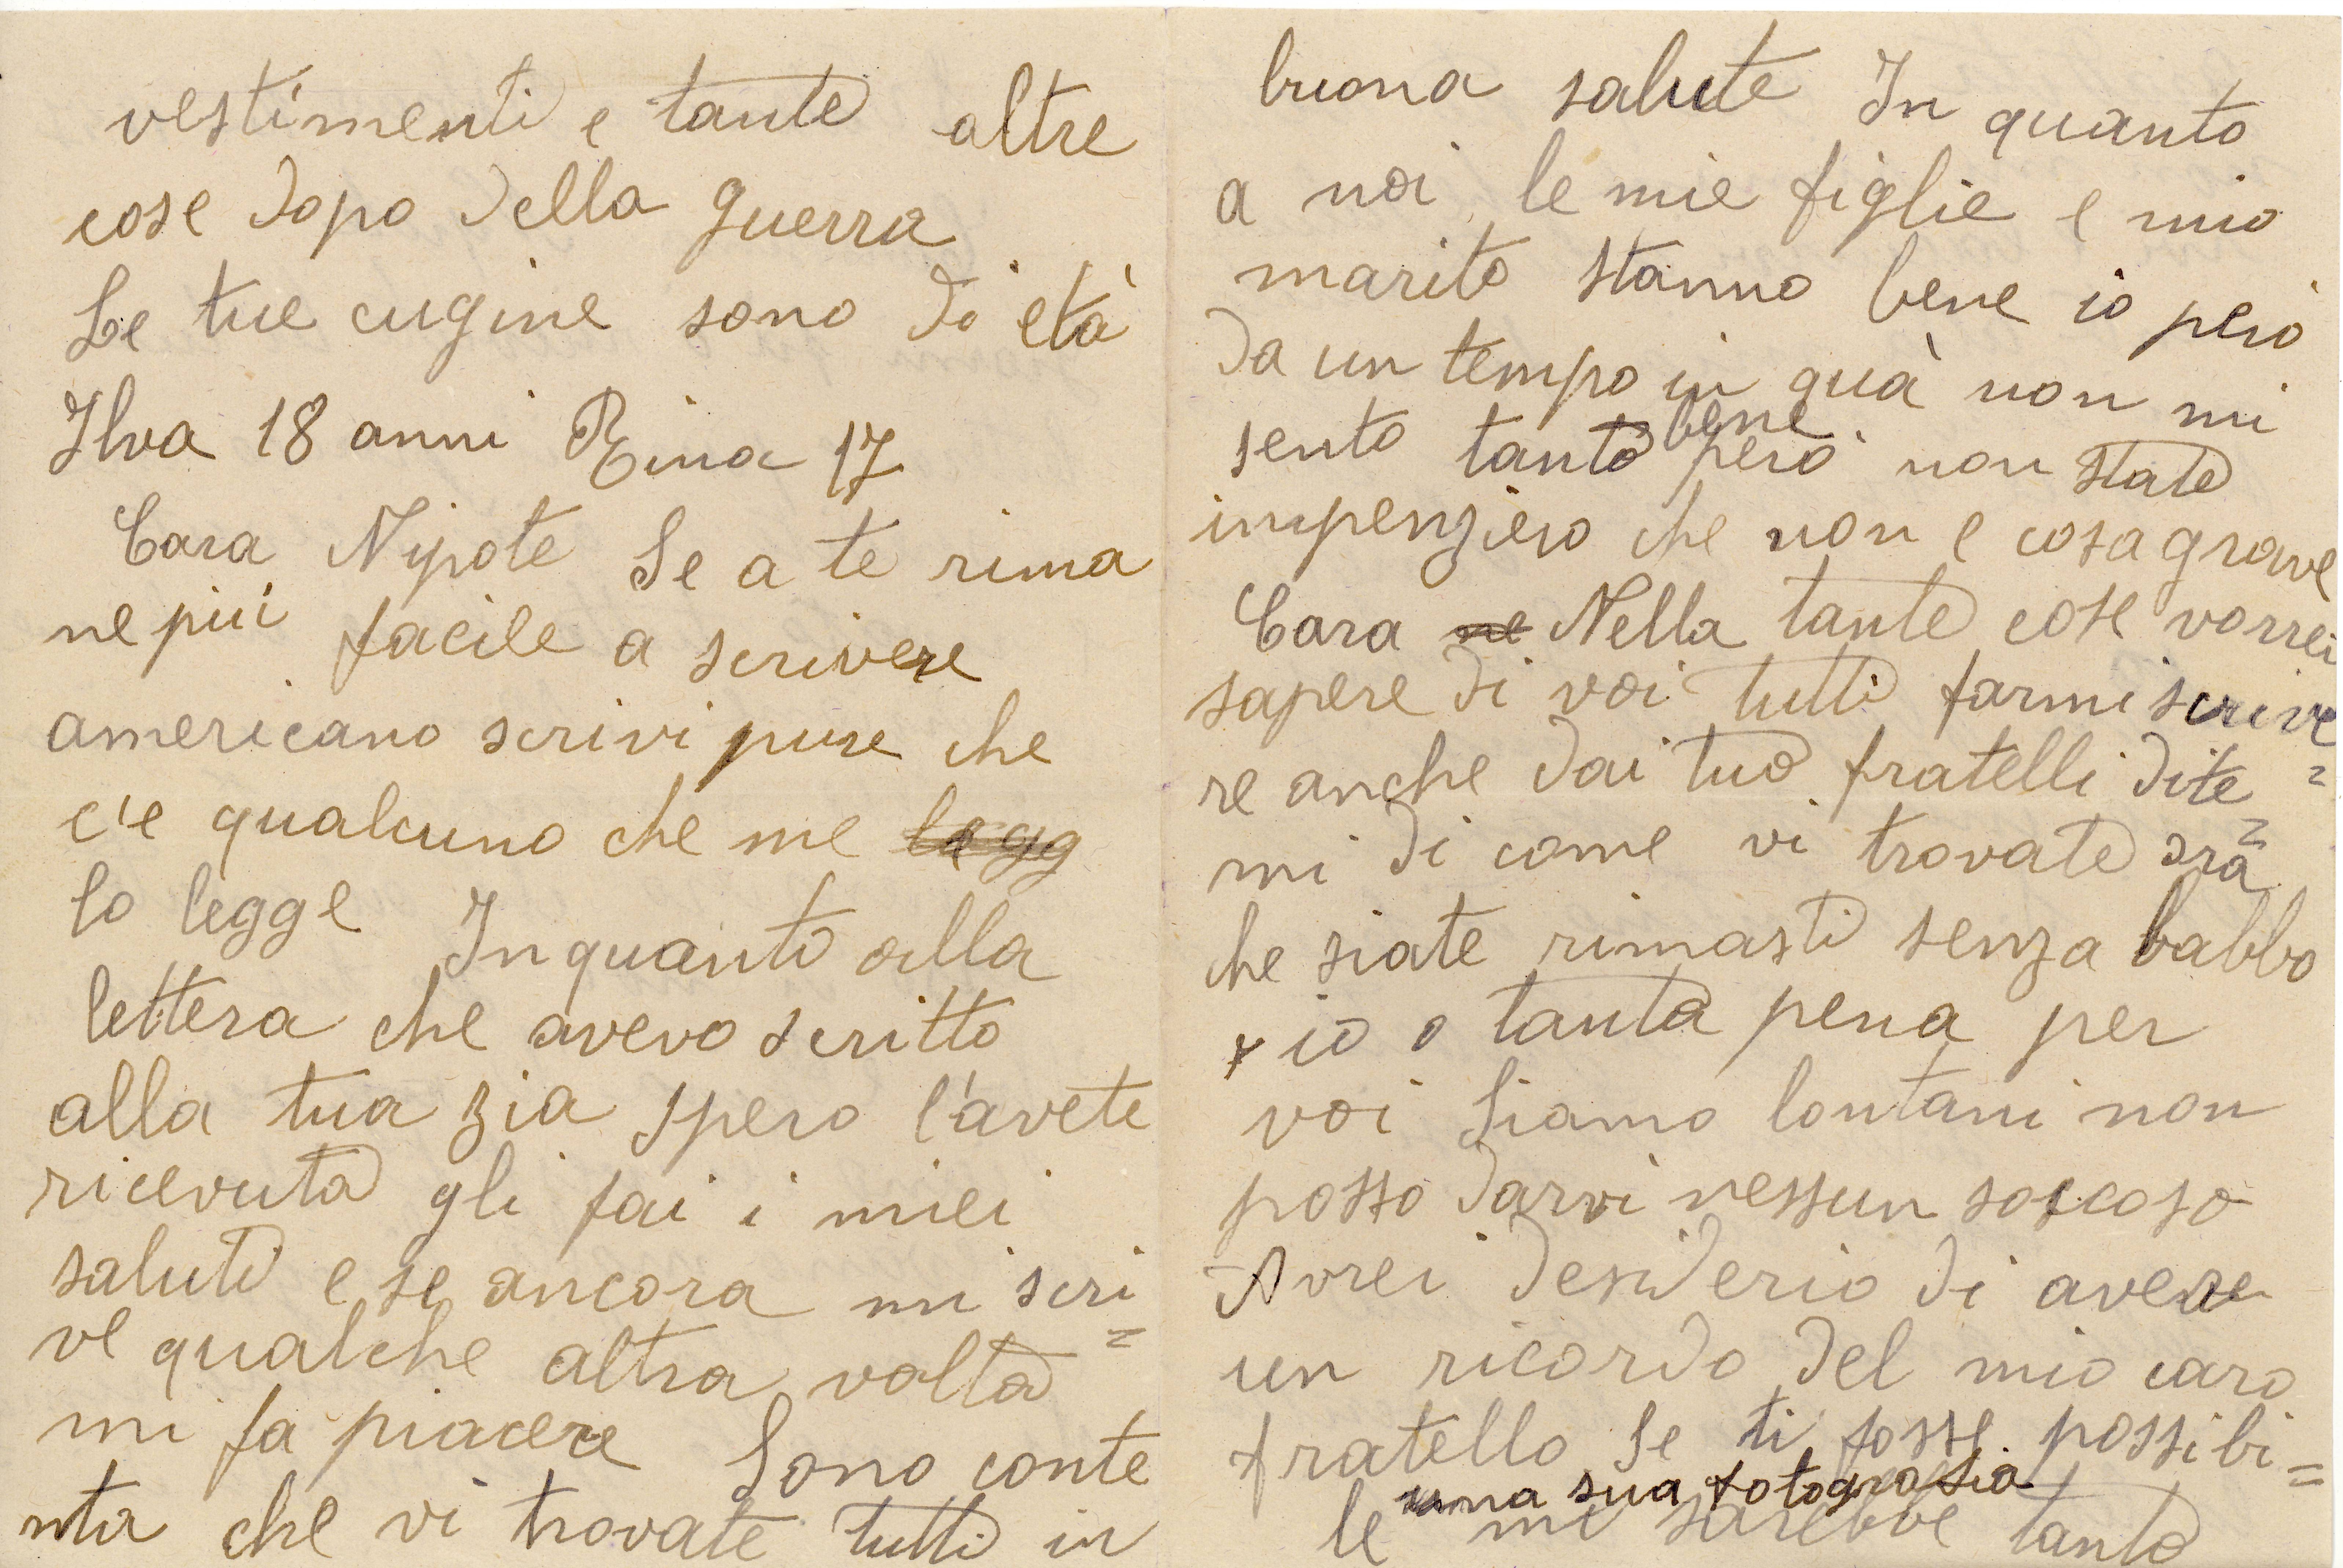 vestimenti e tante altre
cose dopo della guerra
Le tue cugine sono di età
Ilva 18 anni Rina 17
Cara Nipote Se a te rima
ne più facile a scrivere
americano scrivi pure che
c'e qualcuno che me legg
lo legge In quanto alla
lettera che avevo scritto
alla tua zia spero l'avete
ricevuta gli fai i miei
saluti e se ancora mi scri=
ve qualche altra volta
mi fa piacere Sono conte
nta che vi trovate tutti in
buona salute In quanto
a noi le mie figlie e mio
marito stanno bene io però
da un tempo in quà non mi
sento tanto bene però non state
impenziero che non e cosa grave
Cara ne Nella tante cose vorrei
sapere di voi tutti farmi scrive=
re anche dai tuo fratelli dite=
mi di come vi trovate ora
che siate rimasti senza babbo
io o tanta pena per
voi Siamo lontani non
posso darvi nessun soccoso
Avrei desiderio di avere
un ricordo del mio caro
fratello Se ti fosse possibi=
una sua fotografia
le mi sarebbe tanto